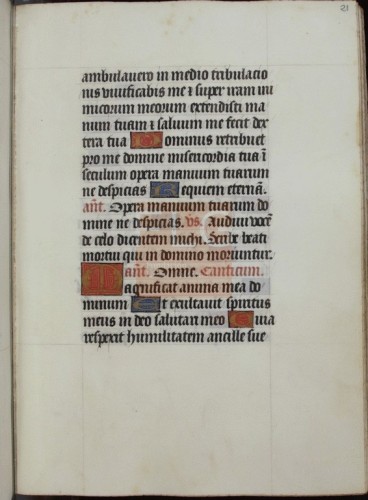 21
ambulavero in medio tribulacio
nis vivificabis me ⁊ super iram ini
micorum meorum extendisti ma
num tuam ⁊ saluum me fecit dex
tera tua Dominus retribuet
pro me domine misericordia tua ī
seculum opera manuum tuarum
ne despicias Requiem eternā.
ant̄. Opera manuum tuarum do
mine ne despicias. vs. Audivi vocē
de celo dicentem michi. Scribe beati
mortui qui in domino moriuntur.
ant̄. Omne. Canticum.
Magnificat anima mea do
minum Et exultauit spiritus
meus in deo salutari meo Quia
respexit humilitatem ancille sue